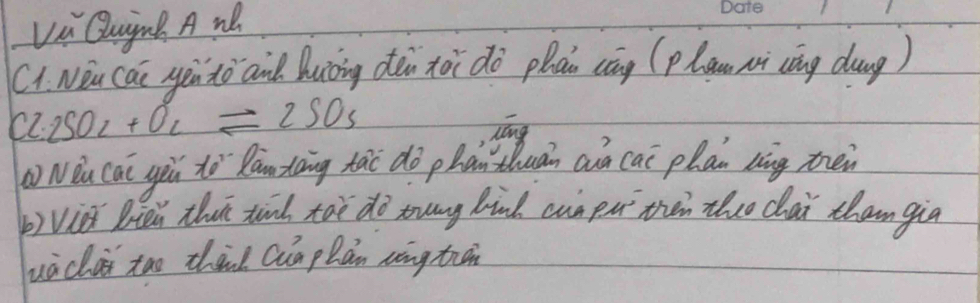 Date / /
Vũ Quỳnh Anh
C1. Nêu các yếu tố ảnh hưởng đến tốc độ phản ứng (phạm vi ứng dụng)
C2. 2SO2 + O2 ⇌ 2SO3
ứng
a) Nêu các yếu tố làm tăng tốc độ phản thuận của các phản ứng trên
b) Viết biểu thức tính tốc độ trung bình của pư trên theo chất tham gia
và chất tạo thành của phản ứng trên